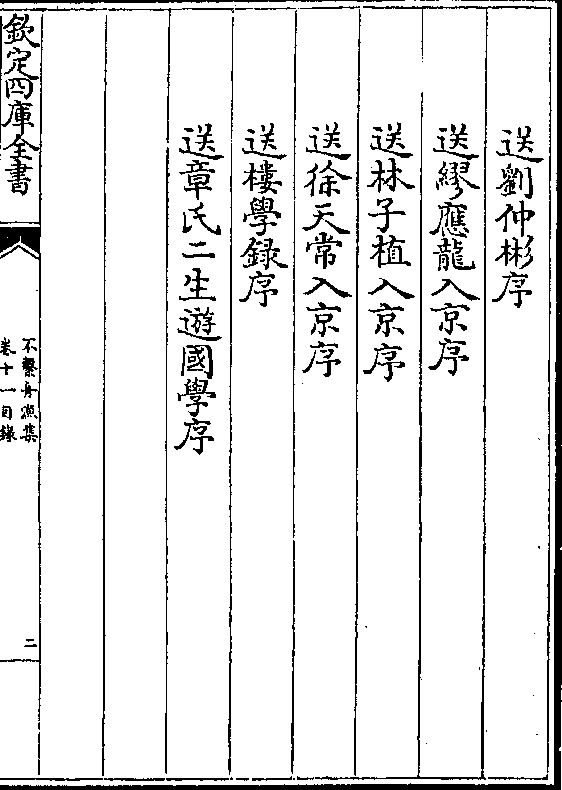 送劉仲彬序
送繆應龍入京序
送林子植入京序
送徐天常入京序
送樓學録序
送章氏二生遊國學序
欽定四庫全書
不繫舟漁集
卷十一目錄
二